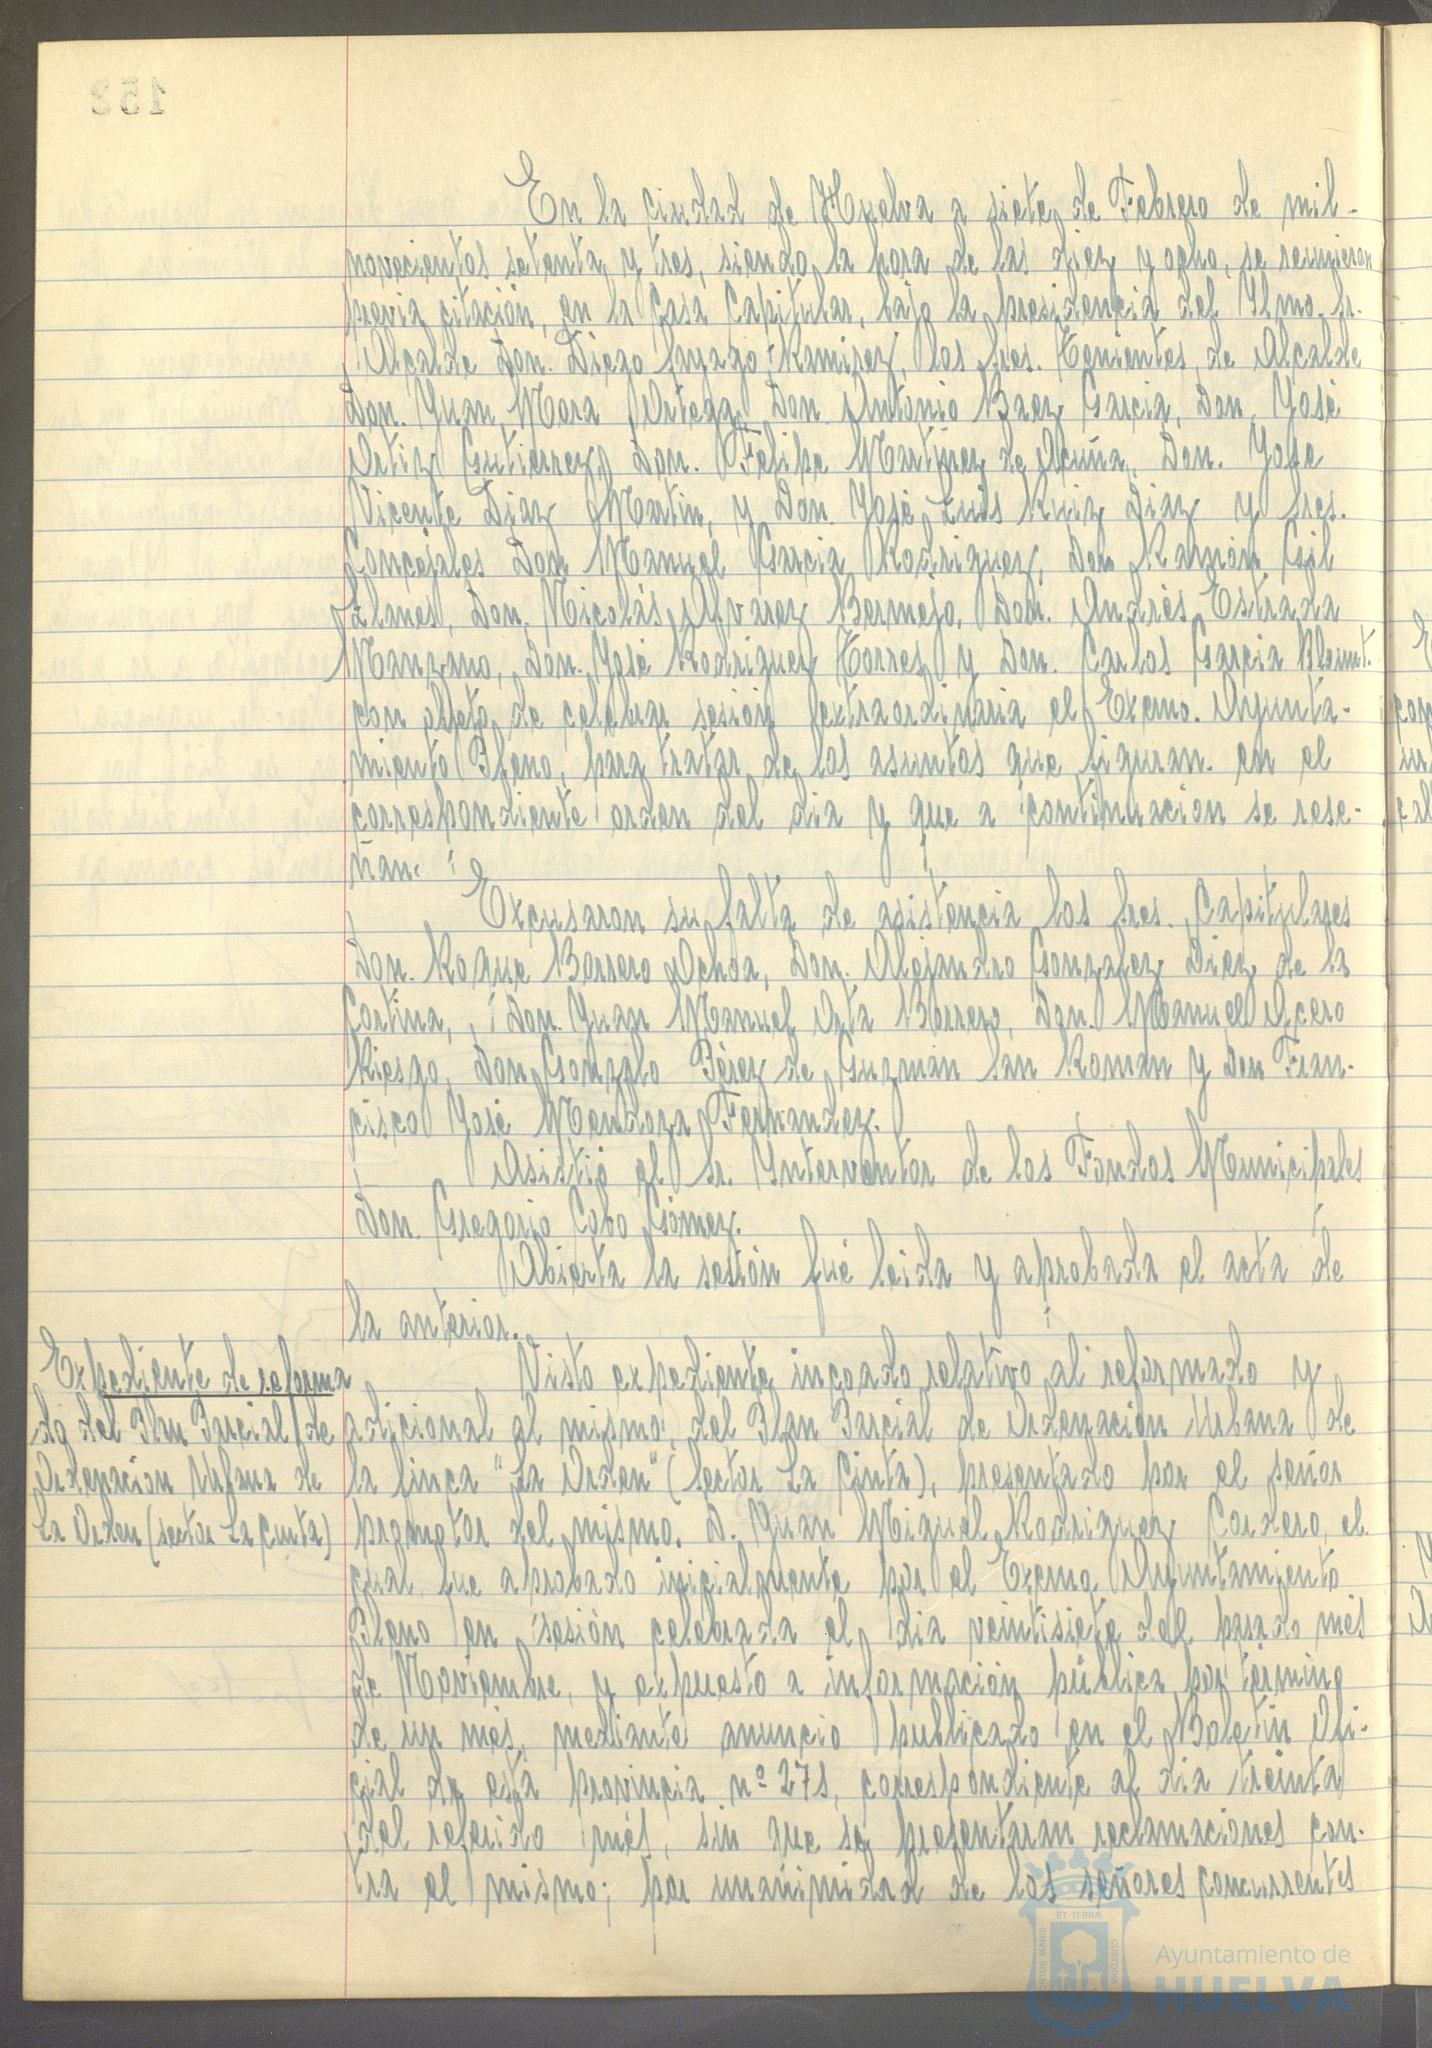 En la ciudad de Huelva a siete de Febrero de mil
novecientos setenta y tres, siendo la hora de las diez y ocho, se reunieron
previa citación, en la Casa Capitular, bajo la presidencia del Ylmo. Sr.
Alcalde Don. Diego Sayago Ramirez, los Sres. Tenientes de Alcalde
Don. Yuan Mora Ortega, Don Antonio Baez Garcia, Don. Yosé
Ortiz Gutierrez, Don. Felipe Martinez de Acuña, Don. Yose
Vicente Diaz Martin, y Don. Yosé Luis Ruiz Diaz y Sres.
Concejales Don Manuel Garcia Rodriguez, Don Ramón Gil
Llanes, Don. Nicolás Alvarez Bermejo, Don. Andrés Estrada
Manzano, Don. Yosé Rodriguez Torres y Don. Carlos Garcia
con objeto de celebrar sesión extraordinaria el Excmo. Ayunta-
miento Pleno, para tratar de los asuntos que figuran en el
correspondiente orden del dia y que a continuacion se rese-
ñan.
Excusaron su falta de asistencia los Sres. Capitulares
Don. Roque Borrero Ochoa, Don. Alejandro Gonzalez Diez de la
Cortina, Don. Yuan Manuel Orta Borrero, Don. Manuel Acero
Riesgo, Don Gonzalo Pérez de Guzmán San Roman y Don Fran-
cisco Yosé Mendoza Fernandez.
Asistió el Sr. Ynterventor de los Fondos Municipales
Don. Gregorio Cobo Gómez.
Abierta la sesión fué leida y aprobada el acta de
la anterior.
Expediente de reforma
do del Plan Parcial de
Ordenacion Urbana de
La Orden (sector La Cinta)
Visto expediente incoado relativo al reformado y
adicional al mismo, del Plan Parcial de Ordenación Urbana de
la finca "La Orden" (Sector La Cinta), presentado por el señor
promotor del mismo. D. Yuan Miguel Rodriguez Cordero, el
cual fue aprobado inicialmente por el Excmo. Ayuntamiento
Pleno en sesión celebrada el dia veintisiete del pasado més
de Noviembre, y expuesto a información pública por término
de un més, mediante anuncio publicado en el Boletín Ofi-
cial de esta provincia nº 271, correspondiente al dia treinta
del referido més, sin que se presentaran reclamaciones con-
tra el mismo; por unanimidad de los señores concurrentes
ET TERRÆ
MARIS
CUSTODIA
Ayuntamiento de
HUELVA